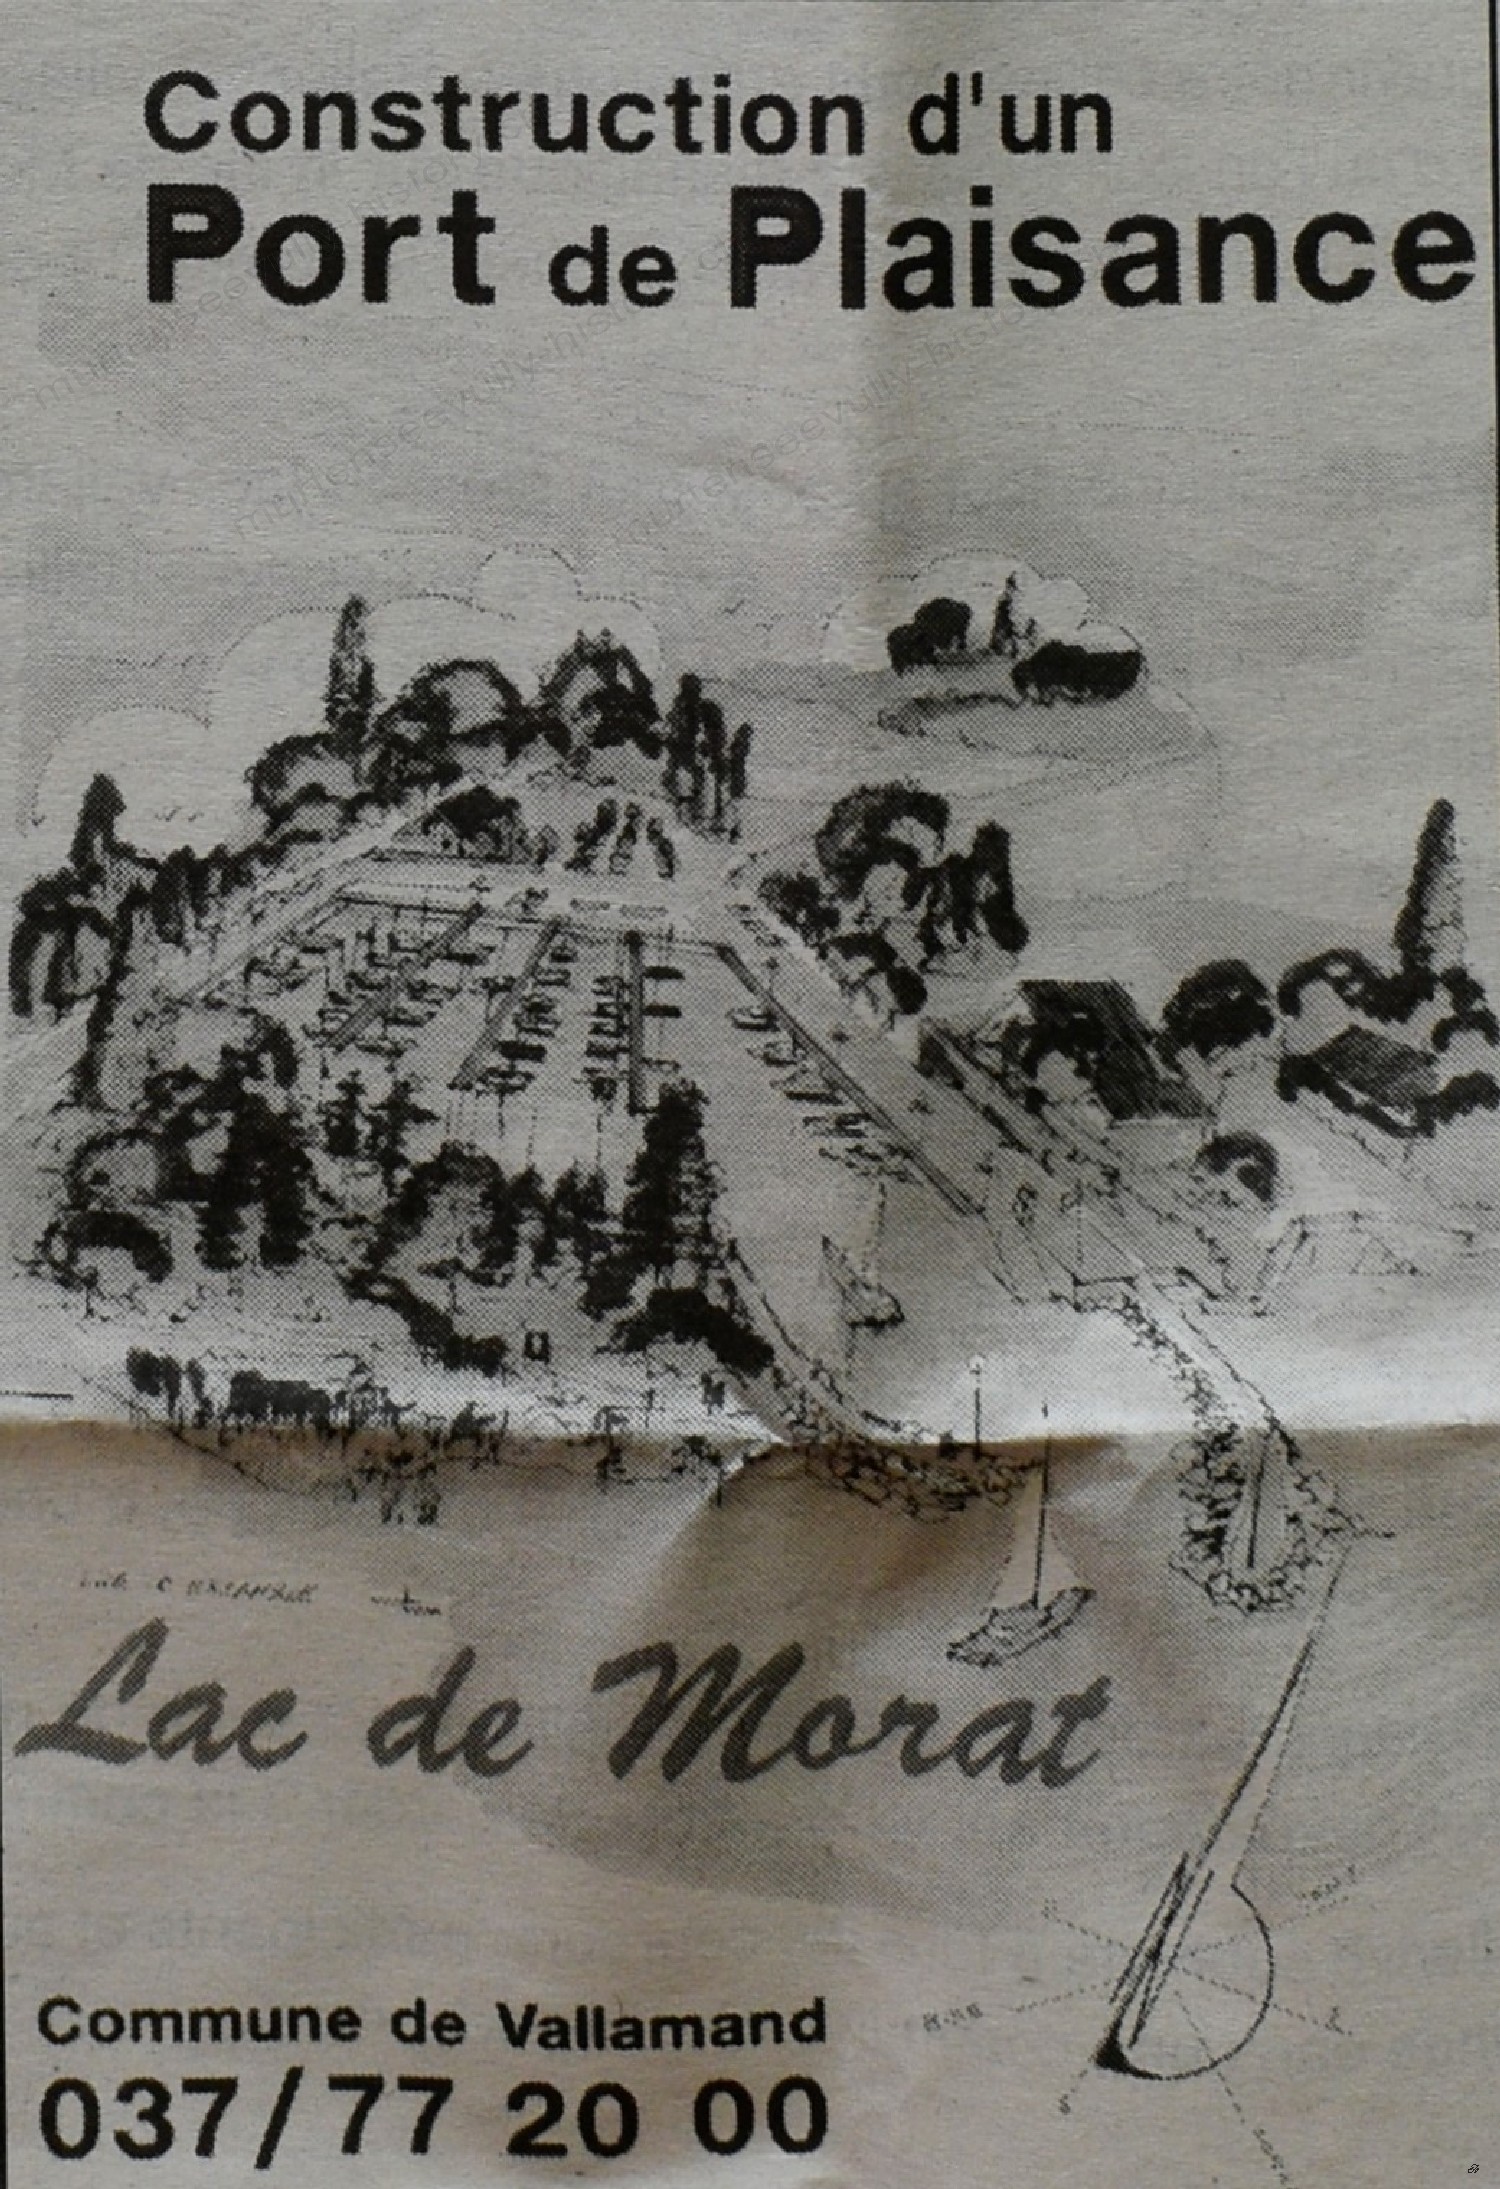 Construction d'un
Port de Plaisance
Lac de Morat
Commune de Vallamand
037/77 20 00